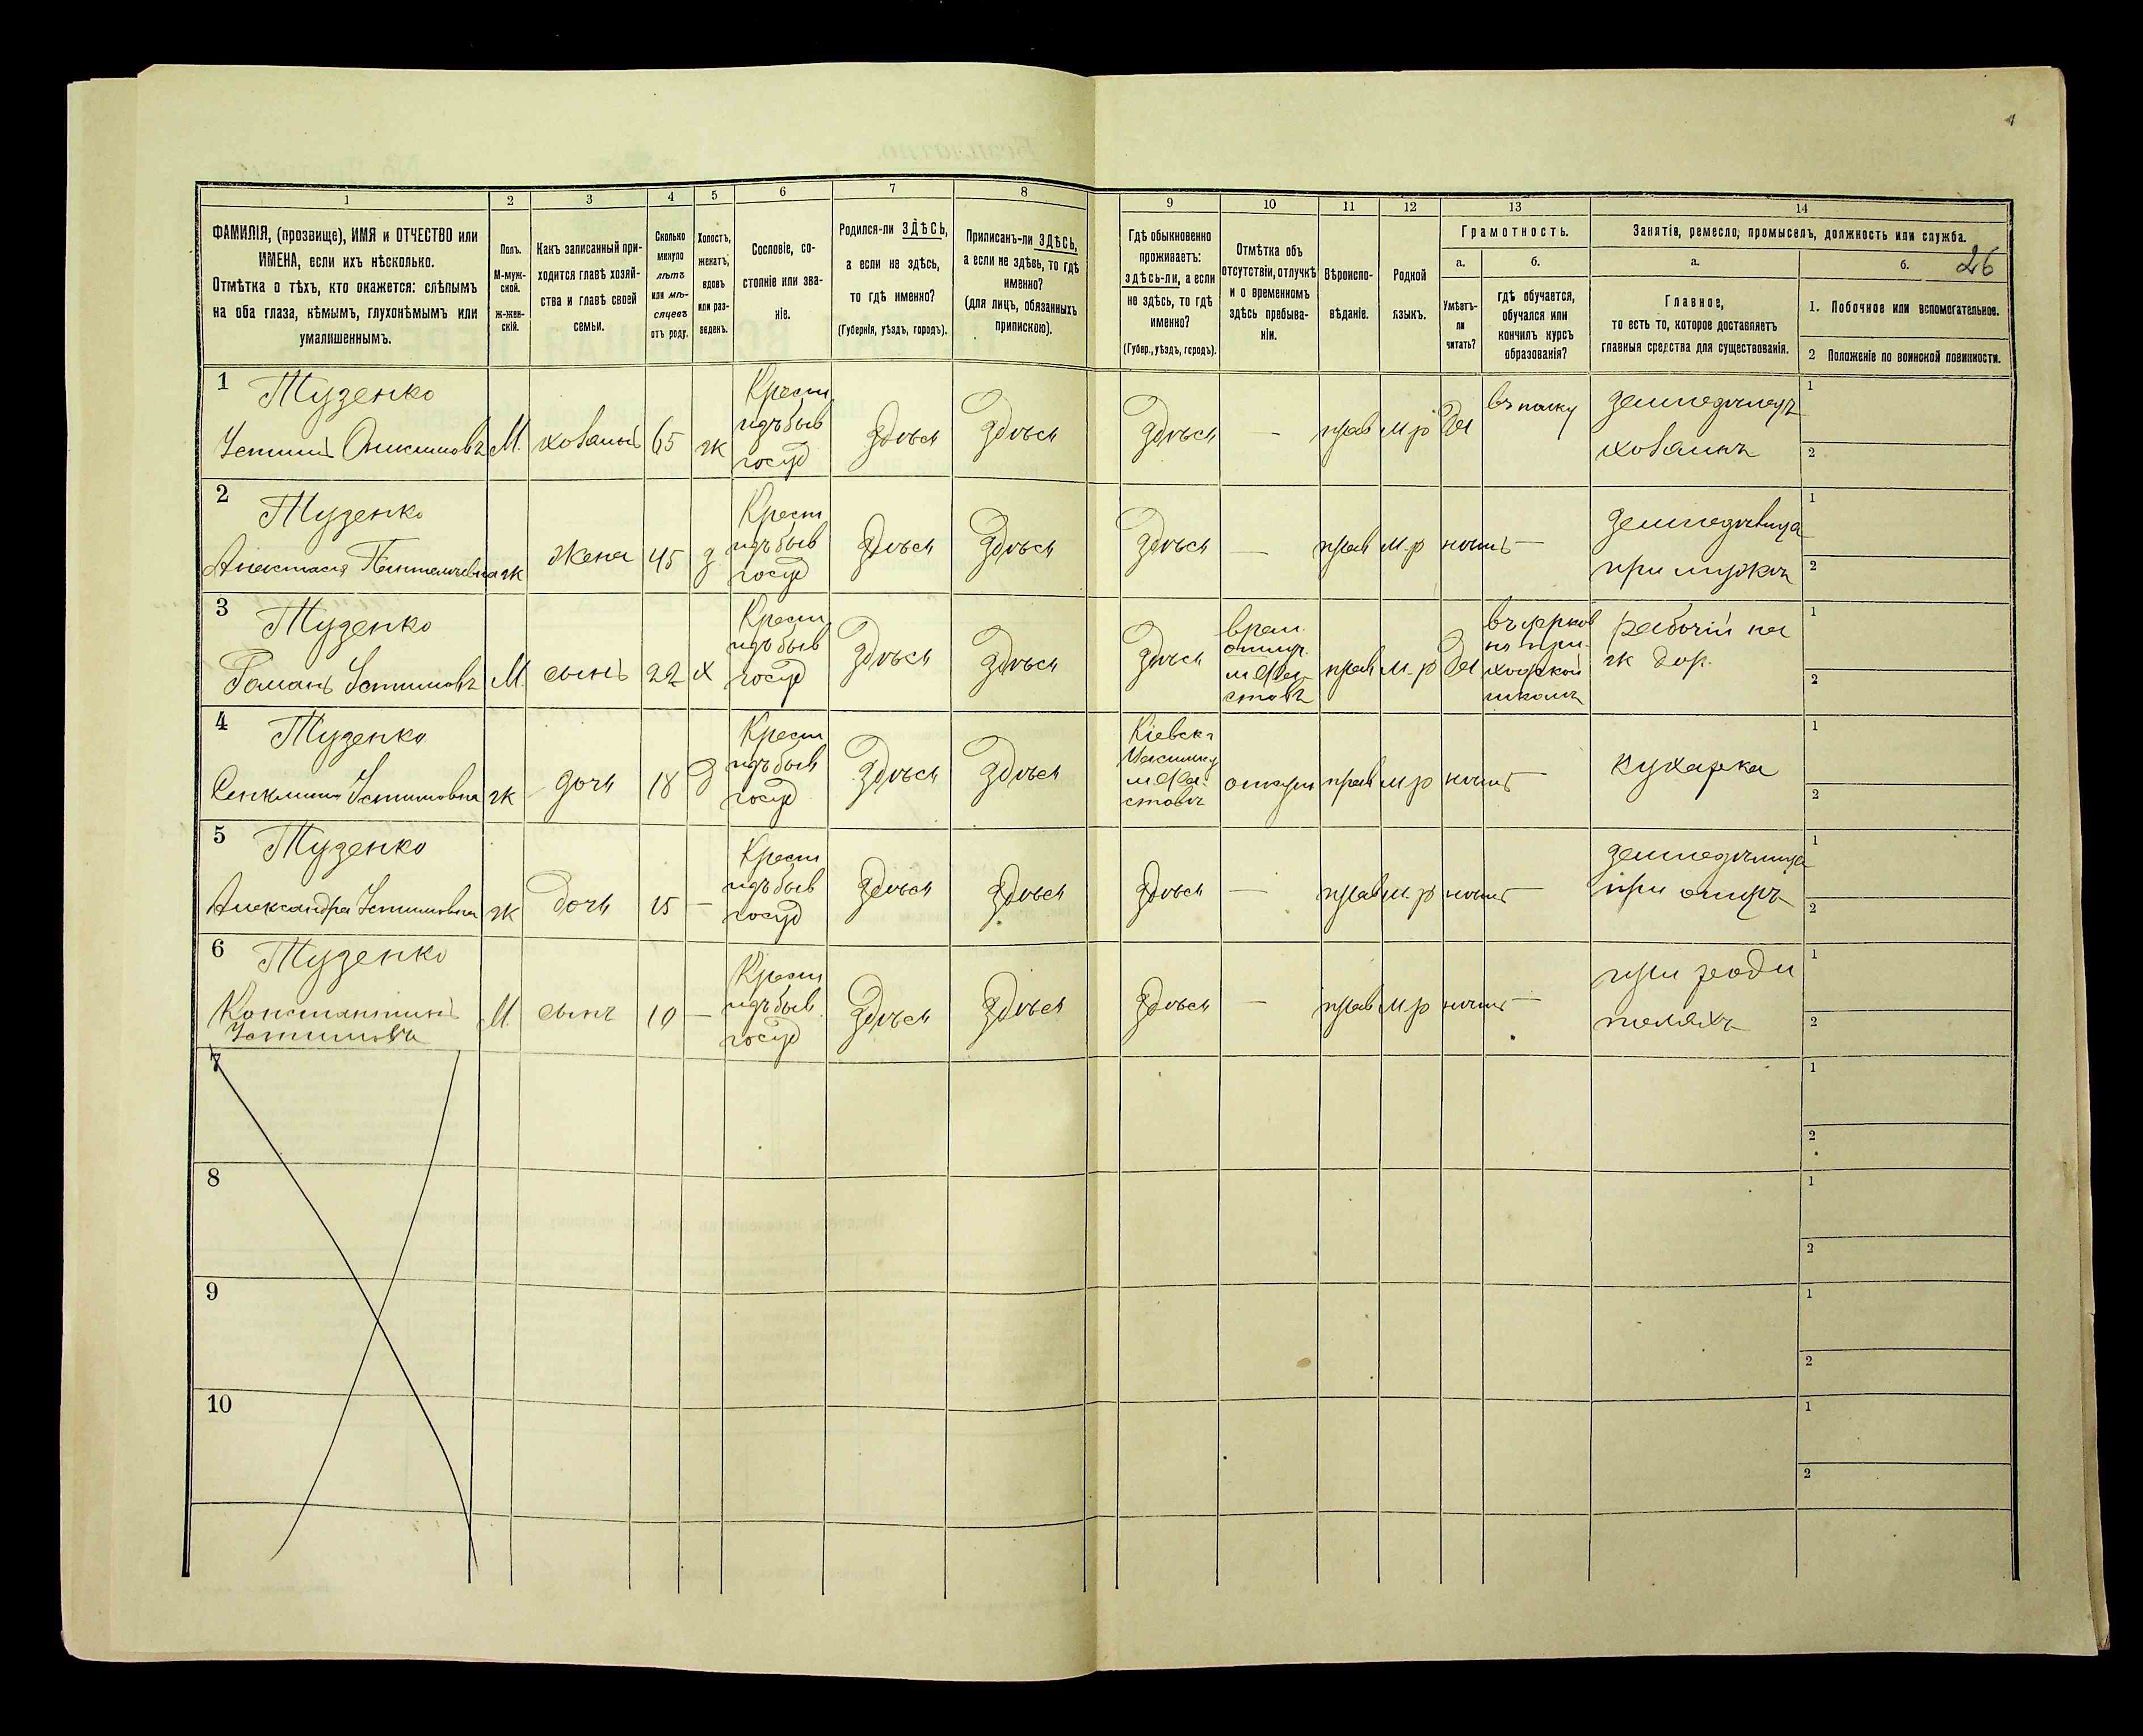 1 2 3 4 5 6 7 8 9 10 11 12 13 14
26
ФАМИЛІЯ, (прозвище), ИМЯ и ОТЧЕСТВО или
ИМЕНА, если ихъ нѣсколько.
Отмѣтка о тѣхъ, кто окажется: слѣпымъ
на оба глаза, нѣмымъ, глухонѣмымъ или
умалишеннымъ.
Полъ.
М-муж-
ской.
ж-жен-
скій.
Какъ записанный при-
ходится главѣ хозяй-
ства и главѣ своей
семьи.
Сколько
минуло
лѣтъ
или мѣ-
сяцевъ
отъ роду.
Холостъ,
женатъ,
вдовъ
или раз-
веденъ.
Сословіе, со-
стояніе или зва-
ніе.
Родился-ли ЗДѢСЬ,
а если не здѣсь,
то гдѣ именно?
(Губернія, уѣздъ, городъ).
Приписанъ-ли ЗДѢСЬ,
а если не здѣсь, то гдѣ
именно?
(для лицъ, обязанныхъ
припискою).
Гдѣ обыкновенно
проживаетъ:
здѣсь-ли, а если
не здѣсь, то гдѣ
именно?
(Губер., уѣздъ, городъ).
Отмѣтка объ
отсутствіи, отлучкѣ
и о временномъ
здѣсь пребыва-
ніи.
Вѣроиспо-
вѣданіе.
Родной
языкъ.
Грамотность.
а.
Умѣетъ-
ли
читать?
б.
гдѣ обучается,
обучался или
кончилъ курсъ
образованія?
Занятіе, ремесло, промыселъ, должность или служба.
а.
Главное,
то есть то, которое доставляетъ
главныя средства для существованія.
б.
1. Побочное или вспомогательное.
2 Положеніе по воинской повинности.
1
Тузенко
Устинъ М. хозаинъ 65 ж
Крест
изъ быв
госуд
здѣсь здѣсь здѣсь — прав м р да
въ полку
земледѣлец
хозаинъ
1
2
2
Тузенко
Анастасія ж жена 45 з
Крест
изъ быв
госуд
здѣсь здѣсь здѣсь — прав м.р нѣтъ —
при мужѣ
1
2
3
Тузенко
Романъ Устиновъ М. сынъ 22 х
Крест
изъ быв
госуд
здѣсь здѣсь здѣсь
врем.
отлуч.
м Фа-
стовъ
прав м.р да
въ церков
но при
ходской
школѣ
рабочій на
ж дор.
1
2
4
Тузенко
Устиновна ж дочь 18 д
Крест
изъ быв
госуд
здѣсь здѣсь
Кіевск г
м Фа-
стовъ
прав м р нѣтъ —
кухарка
1
2
5
Тузенко
Александра Устиновна ж дочь 15 —
Крест
изъ быв
госуд
здѣсь здѣсь здѣсь — прав м. р нѣтъ —
земледѣлица
при отцѣ
1
2
6
Тузенко
Константинъ
Устиновъ
М. сынъ 10 —
Крест
изъ быв.
госуд
здѣсь здѣсь здѣсь — прав м р нѣтъ —
при роди
теляхъ
1
2
7
1
2
8
1
2
9
1
2
10
1
2